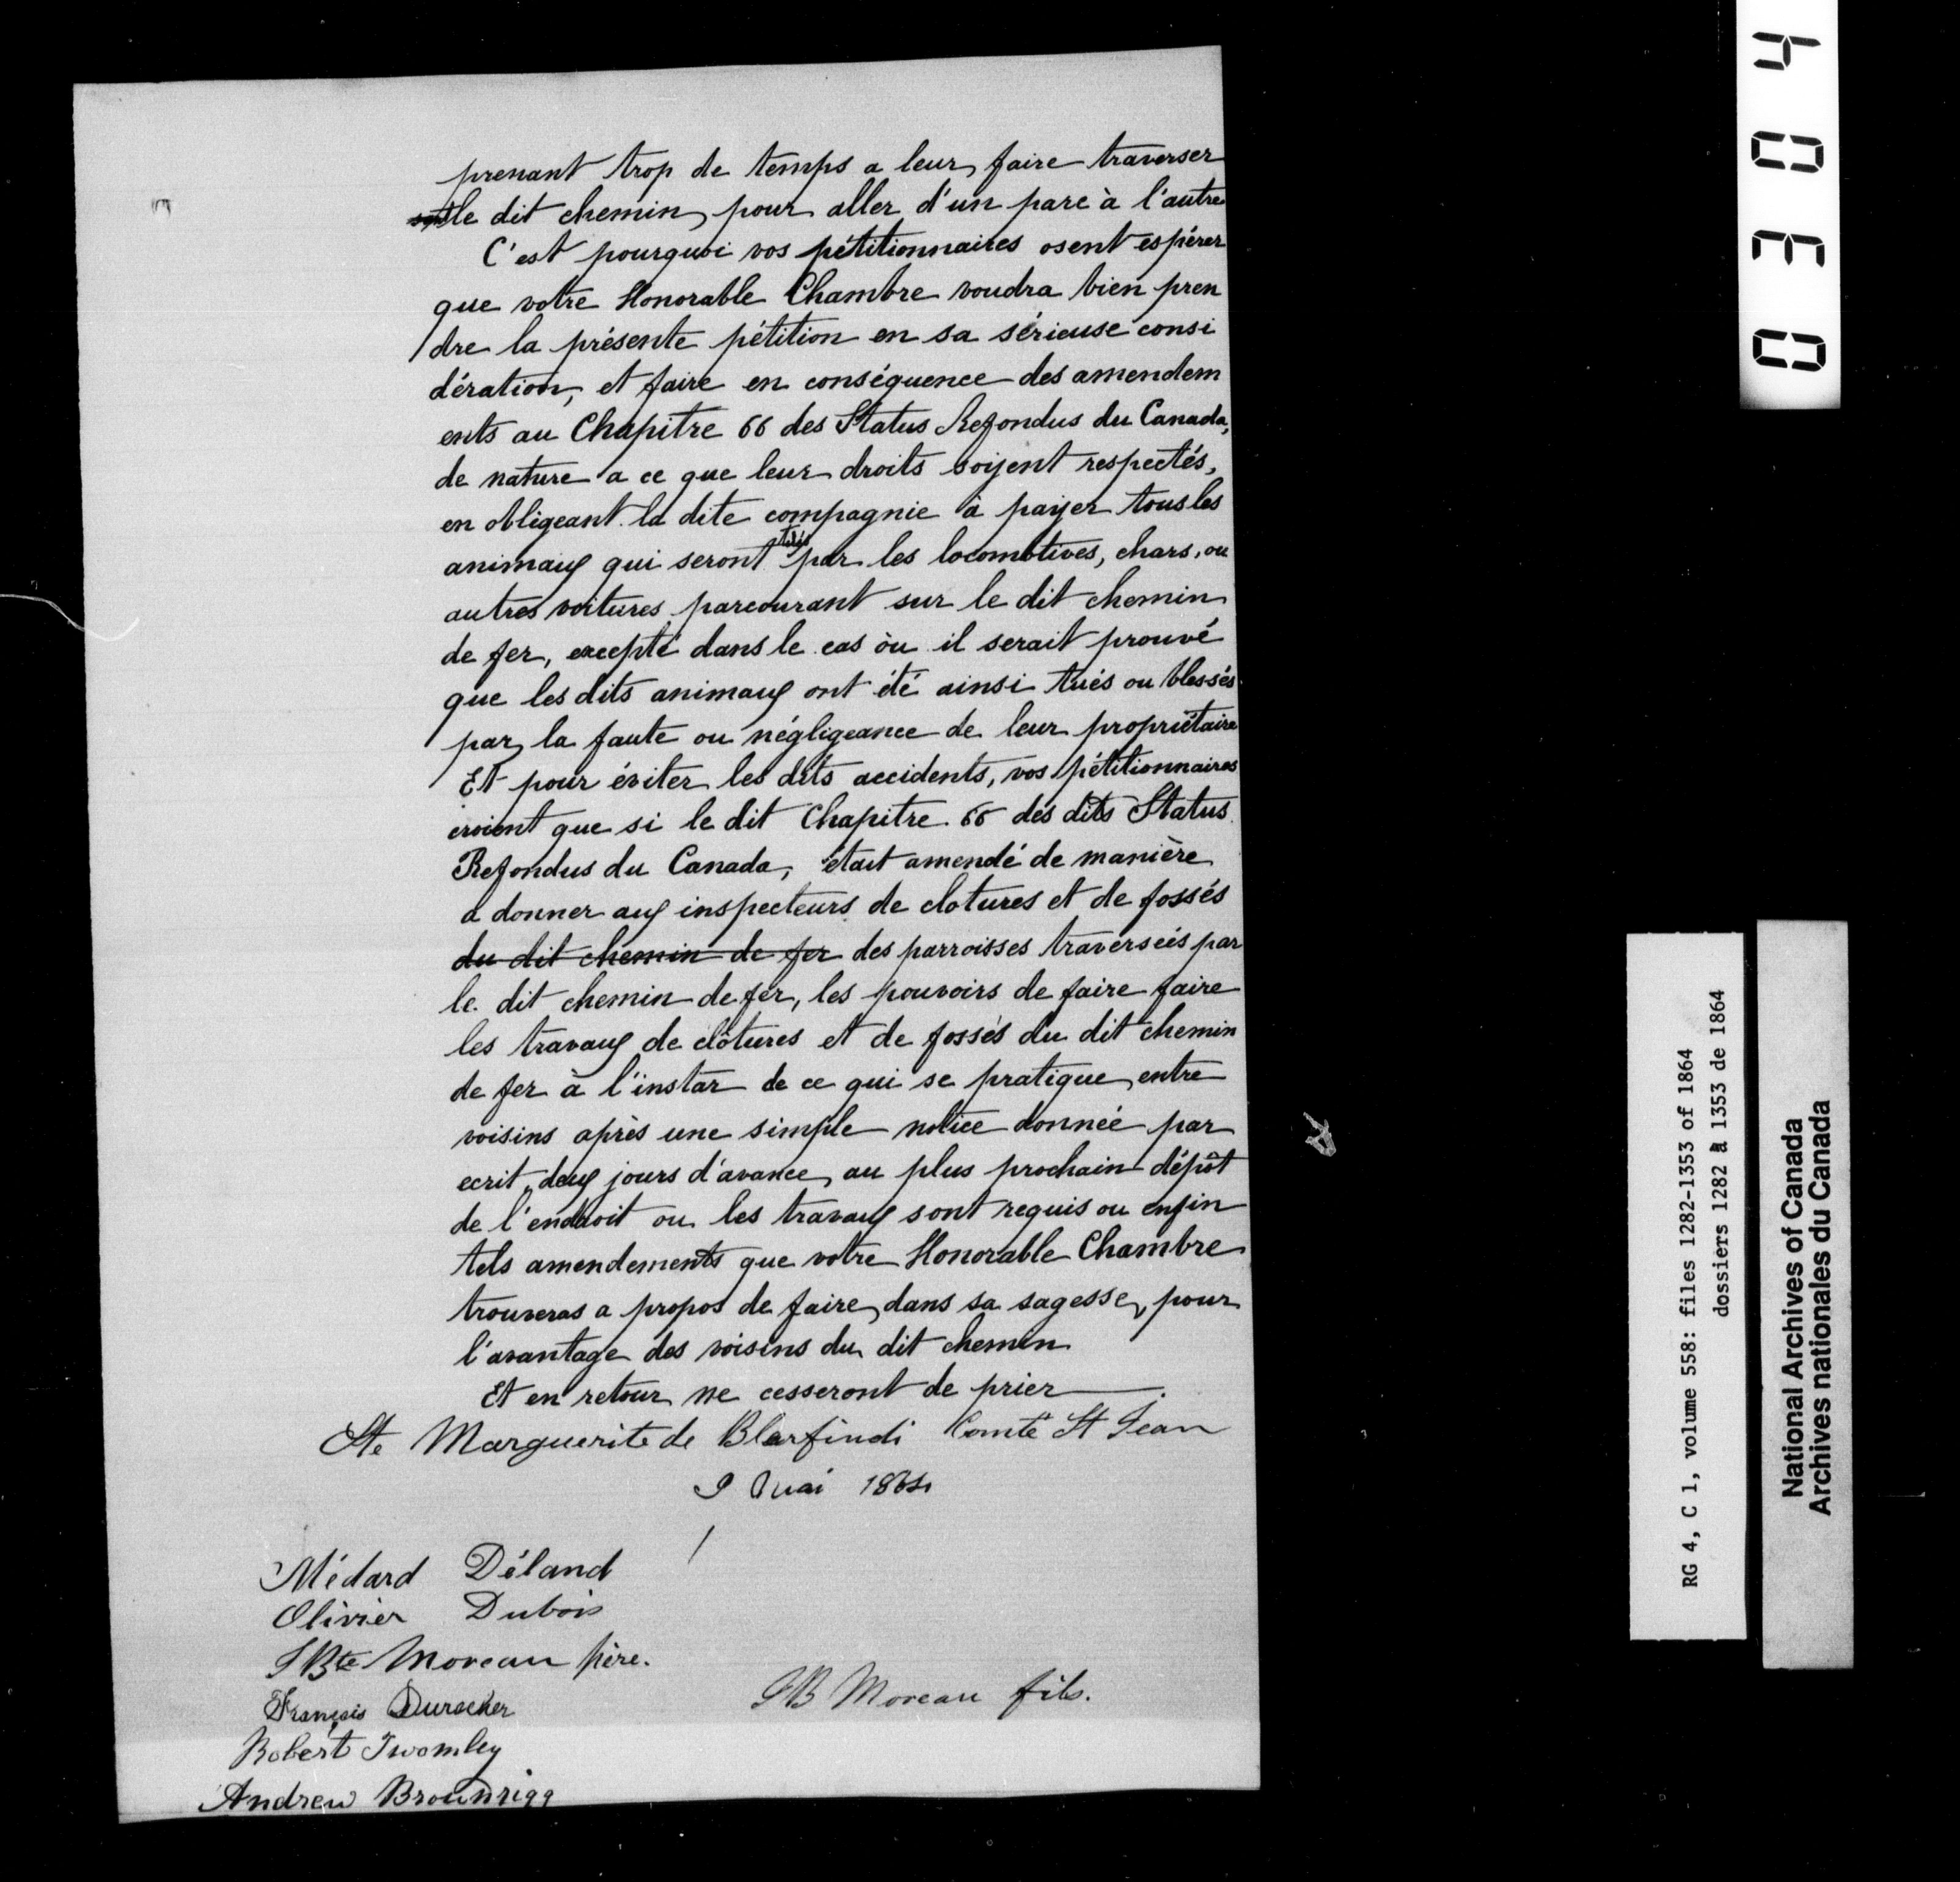 prenant trop de temps a leur faire traverser
le dit chemin, pour aller d'un parc à l'autre
C'est pourquoi vos pétitionnaires osent espérer
que votre Honorable Chambre voudra bien pren
dre la présente pétition en sa sérieuse consi
dération, et faire en conséquence des amendem
ents au Chapitre 66 des Status Refondus du Canada,
de nature a ce que leur droits soyent respectés,
en obligeant la dite compagnie à payer tous les
animaux qui seront tués par les locomotives, chars, ou
autres voitures parcourant sur le dit chemin
de fer, excepté dans le cas òu il serait prouvé
que les dits animaux ont été ainsi tués ou blessés
par la faute ou négligeance de leur propriétaire
Et pour éviter les dits accidents, vos pétitionnaires
croient que si le dit Chapitre 66 des dits Status
Refondus du Canada, était amendé de manière
a donner aux inspecteurs de clotures et de fossés
du dit chemin de fer des parroisses traverseés par
le dit chemin de fer, les pouvoirs de faire faire
les travaux de clôtures et de fossés du dit chemin
de fer à l'instar de ce qui se pratique entre
voisins après une simple notice donnée par
ecrit, deux jours d'avance, au plus prochain dépôt
de l'endroit ou les travaux sont requis ou enfin
tels amendements que votre Honorable Chambre
trouveras a propos de faire, dans sa sagesse, pour
l'avantage des voisins du dit chemin
Et en retour ne cesseront de prier
Ste Marguerite de Blarfindi Comté St Jean
9 Mai 1864
Médard Déland
Olivier Dubois
J Bte Moreau père.
JB Moreau fils.
François Durocher
Robert Twomley
Andrew Brownrigg
0304
RG 4, C 1, volume 558: files 1282-1353 of 1864
dossiers 1282 à 1353 de 1864
National Archives of Canada
Archives nationales du Canada